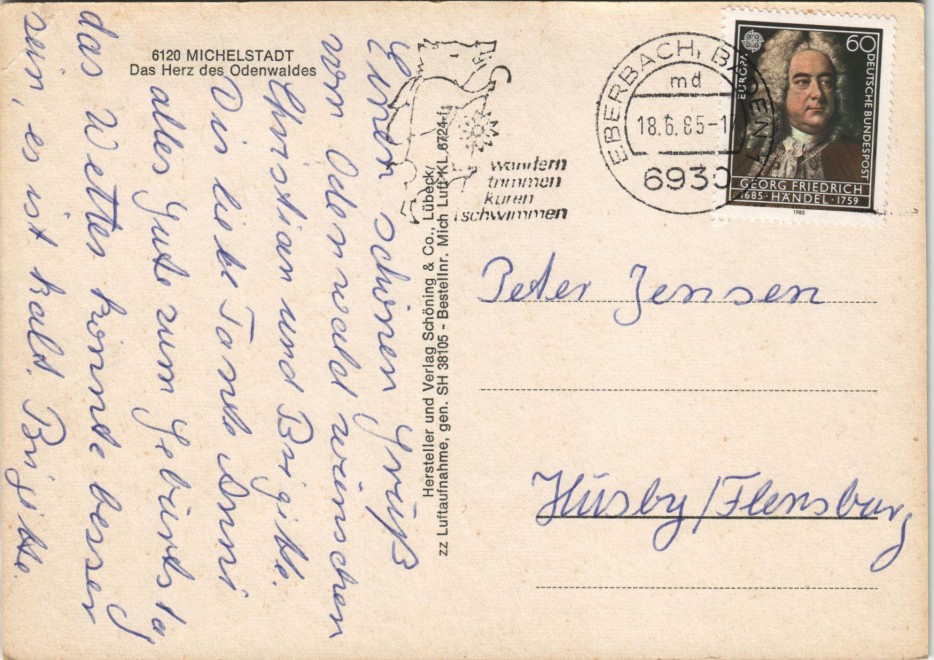 6120 MICHELSTADT
Das Herz des Odenwaldes
Einen schönen Gruß
vom Odenwald wünschen
Christian und Brigitte.
Dir liebe Tante Anni
alles Gute zum Geburtstag
das Wetter könnte besser
sein, es ist kalt. Brigitte.
Hersteller und Verlag Schöning & Co., Lübeck/
zz Luftaufnahme, gen. SH 38105 - Bestellnr. Mich Luft KL 6724
wandern
trimmen
kuren
schwimmen
EBERBACH, BADEN 1
md
18.6.85-1
6930
EUROPA
60
DEUTSCHE BUNDESPOST
GEORG FRIEDRICH
1685 · HÄNDEL · 1759
1985
Peter Jensen
Hüsby/Flensburg